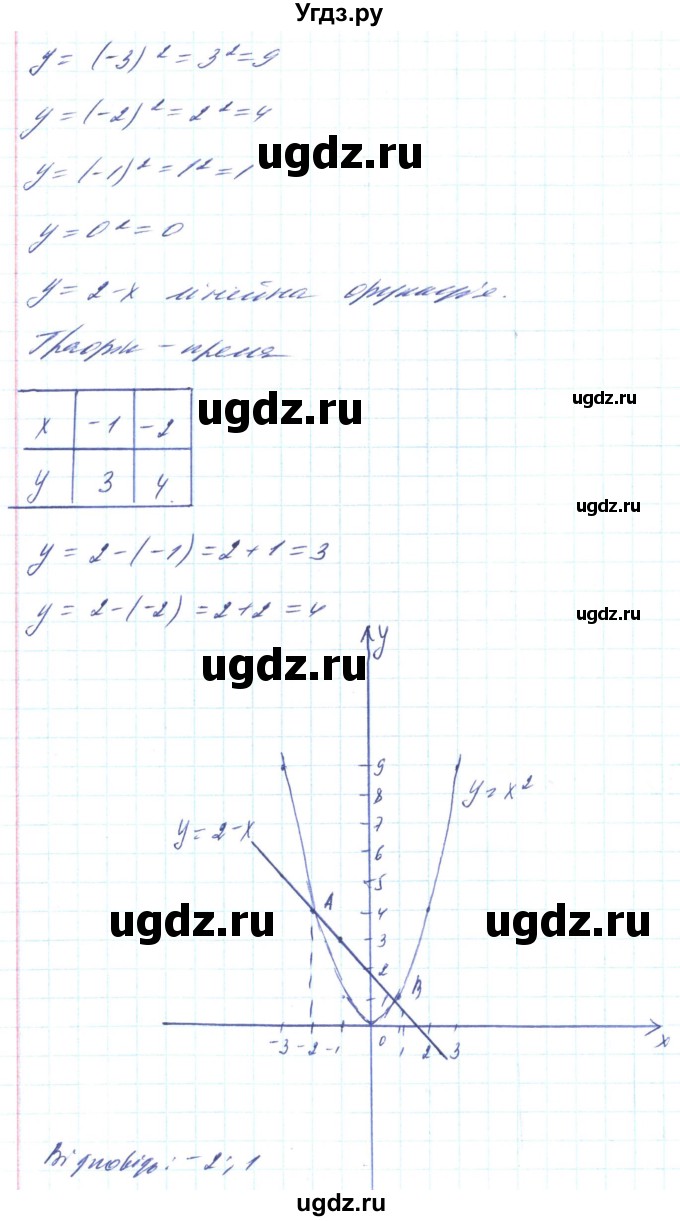 Угдз.ру
y = (-3)² = 3² = 9
y = (-2)² = 2² = 4
ugdz.ru
y = (-1)² = 1² = 1
y = 0² = 0
y = 2 - x лінійна функція.
Графік - пряма
ugdz.ru
ugdz.ru
x -1 -2
y 3 4
ugdz.ru
y = 2 - (-1) = 2 + 1 = 3
y = 2 - (-2) = 2 + 2 = 4
ugdz.ru
ugdz.ru
y
9
8
y = x²
7
y = 2 - x
6
5
A
4
ugdz.ru
ugdz.ru
3
2
1
B
-3 -2 -1 0 1 2 3 x
Відповідь: -2; 1
ugdz.ru